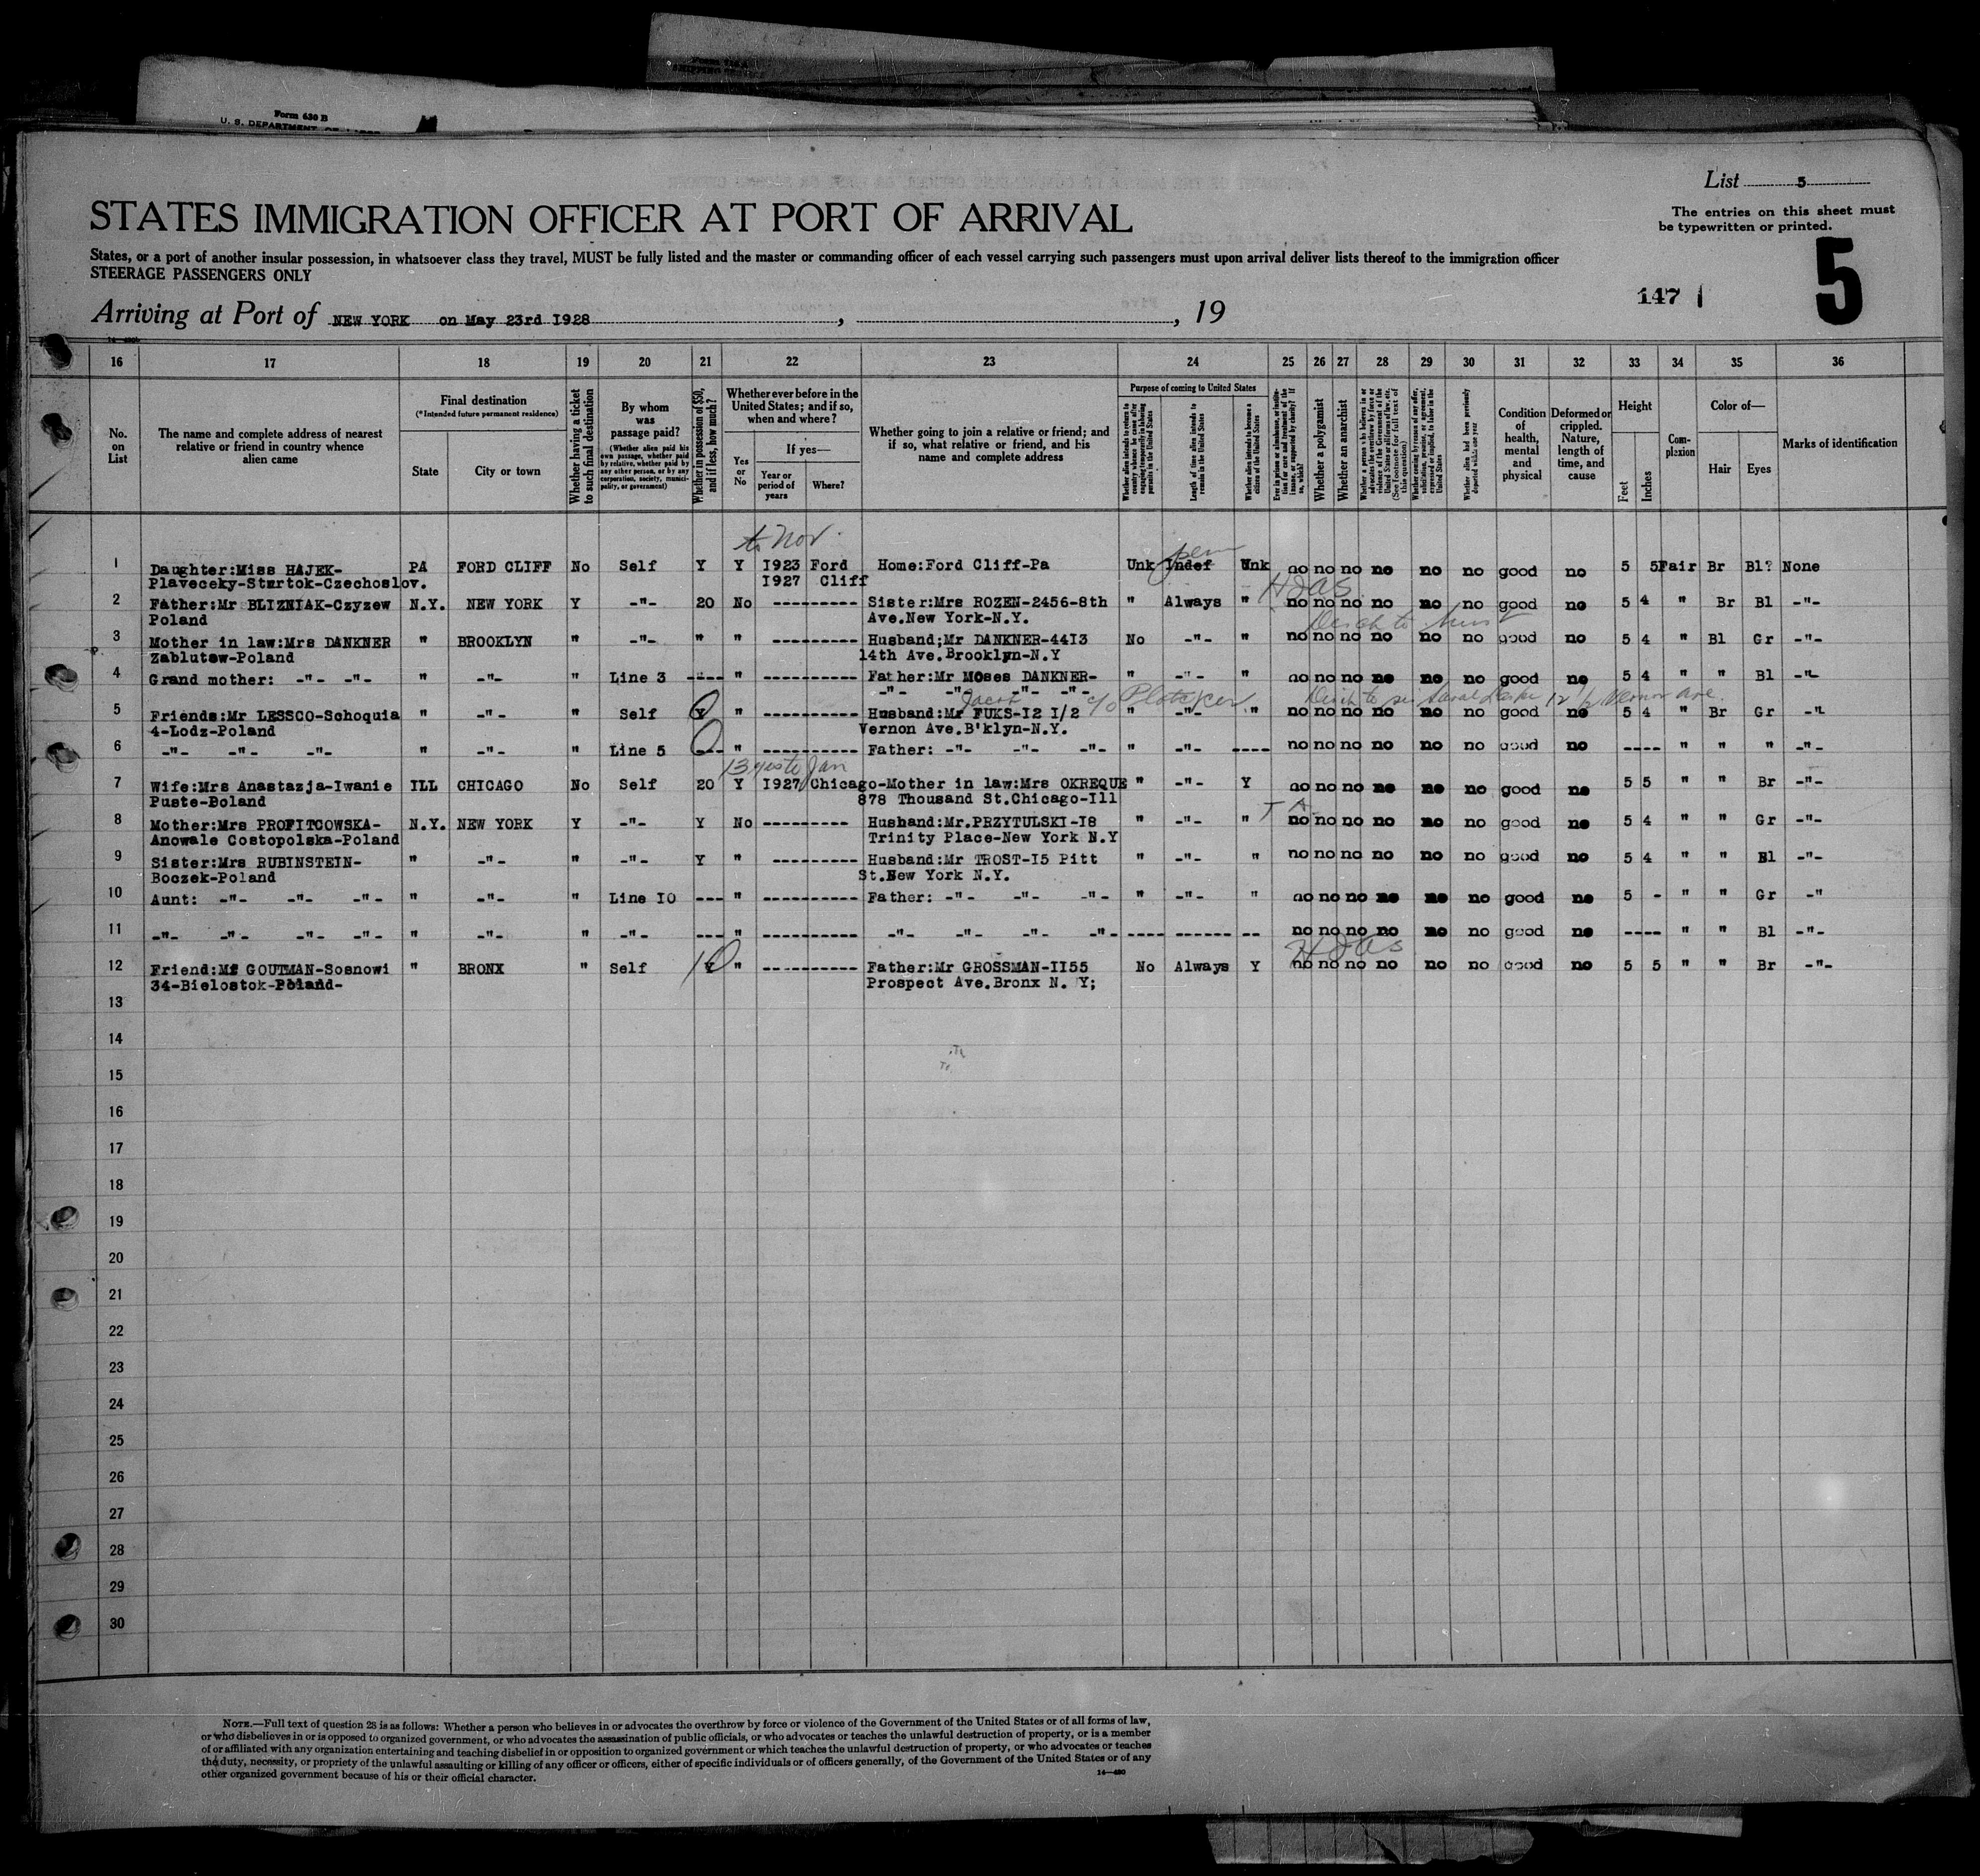 Form 630 B
U. S. DEPARTMENT OF
List 5
STATES IMMIGRATION OFFICER AT PORT OF ARRIVAL
The entries on this sheet must
be typewritten or printed.
States, or a port of another insular possession, in whatsoever class they travel, MUST be fully listed and the master or commanding officer of each vessel carrying such passengers must upon arrival deliver lists thereof to the immigration officer
STEERAGE PASSENGERS ONLY
5
147
Arriving at Port of NEW YORK on May 23rd I928, , 19
16 17 18 19 20 21 22 23 24 25 26 27 28 29 30 31 32 33 34 35 36
No. on List
The name and complete address of nearest relative or friend in country whence alien came
Final destination
(*Intended future permanent residence)
State
City or town
Whether having a ticket to such final destination
By whom was passage paid?
(Whether alien paid his own passage, whether paid by relative, whether paid by any other person, or by any corporation, society, municipality, or government)
Whether in possession of $50, and if less, how much?
Whether ever before in the United States; and if so, when and where?
Yes or No
If yes—
Year or period of years
Where?
Whether going to join a relative or friend; and if so, what relative or friend, and his name and complete address
Purpose of coming to United States
Whether alien intends to return to country whence he came after engaging temporarily in laboring pursuits in the United States
Length of time alien intends to remain in the United States
Whether alien intends to become a citizen of the United States
Whether a polygamist
Whether an anarchist
Condition of health, mental and physical
Deformed or crippled. Nature, length of time, and cause
Height
Feet
Inches
Complexion
Color of—
Hair
Eyes
Marks of identification
to Nov.
perm
1 Daughter:Miss HAJEK- PA FORD CLIFF No Self Y Y I923 Ford Home:Ford Cliff-Pa Unk Indef Unk no no no no no no good no 5 5 Fair Br Bl? None
Plavecky-Stwrtok-Czechoslov. I927 Cliff
Hias
2 Father:Mr BLIZNIAK-Czyzew N.Y. NEW YORK Y -"- 20 No --------- Sister:Mrs ROZEN-2456-8th " Always " no no no no no no good no 5 4 " Br Bl -"-
Poland Ave.New York-N.Y.
3 Mother in law:Mrs DANKNER " BROOKLYN " -"- " " --------- Husband:Mr DANKNER-44I3 No -"- " no no no no no no good no 5 4 " Bl Gr -"-
Zablutow-Poland 14th Ave.Brooklyn-N.Y
4 Grand mother: -"- -"- " -"- " Line 3 ---- " ---------- Father:Mr MOses DANKNER- " -"- " no no no no no no good no 5 4 " " Bl -"-
-"- -"- -"- -"-
Jacob c/o Plotcker
5 Friends:Mr LESSCO-Schoquia " -"- " Self Y " ---------- Husband:Mr FUKS-I2 I/2 " -"- " no no no no no no good no 5 4 " Br Gr -"-
4-Lodz-Poland Vernon Ave.B'klyn-N.Y.
6 -"- -"- -"- " -"- " Line 5 --- " ---------- Father: -"- -"- -"- " -"- ---- no no no no no no good no ---- " " " -"-
13 yrs to Jan
7 Wife:Mrs Anastazja-Iwanie ILL CHICAGO No Self 20 Y I927 Chicago-Mother in law:Mrs OKREQUE " -"- Y no no no no no no good no 5 5 " " Br -"-
Puste-Poland 878 Thousand St.Chicago-Ill
8 Mother:Mrs PROFITCOWSKA- N.Y. NEW YORK Y -"- Y No --------- Husband:Mr.PRZYTULSKI-I8 " -"- " no no no no no no good no 5 4 " " Gr -"-
Anowale Costopolska-Poland Trinity Place-New York N.Y
9 Sister:Mrs RUBINSTEIN- " -"- " -"- Y " ---------- Husband:Mr TROST-I5 Pitt " -"- " no no no no no no good no 5 4 " " Bl -"-
Boczek-Poland St.New York N.Y.
10 Aunt: -"- -"- -"- " -"- " Line IO --- " ---------- Father: -"- -"- -"- " -"- " no no no no no no good no 5 - " " Gr -"
11 -"- -"- -"- -"- " -"- " -"- --- " ---------- -"- -"- -"- -"- ---- ------ -- no no no no no no good no ---- " " Bl -"-
10 Hias
12 Friend:Mr GOUTMAN-Sosnowi " BRONX " Self Y " ---------- Father:Mr GROSSMAN-II55 No Always Y no no no no no no good no 5 5 " " Br -"-
34-Bielostok-Poland- Prospect Ave.Bronx N. Y;
13
14
15
16
17
18
19
20
21
22
23
24
25
26
27
28
29
30
NOTE.—Full text of question 28 is as follows: Whether a person who believes in or advocates the overthrow by force or violence of the Government of the United States or of all forms of law,
or who disbelieves in or is opposed to organized government, or who advocates the assassination of public officials, or who advocates or teaches the unlawful destruction of property, or is a member
of or affiliated with any organization entertaining and teaching disbelief in or opposition to organized government or which teaches the unlawful destruction of property, or who advocates or teaches
the duty, necessity, or propriety of the unlawful assaulting or killing of any officer or officers, either of specific individuals or of officers generally, of the Government of the United States or of any
other organized government because of his or their official character.
14—480